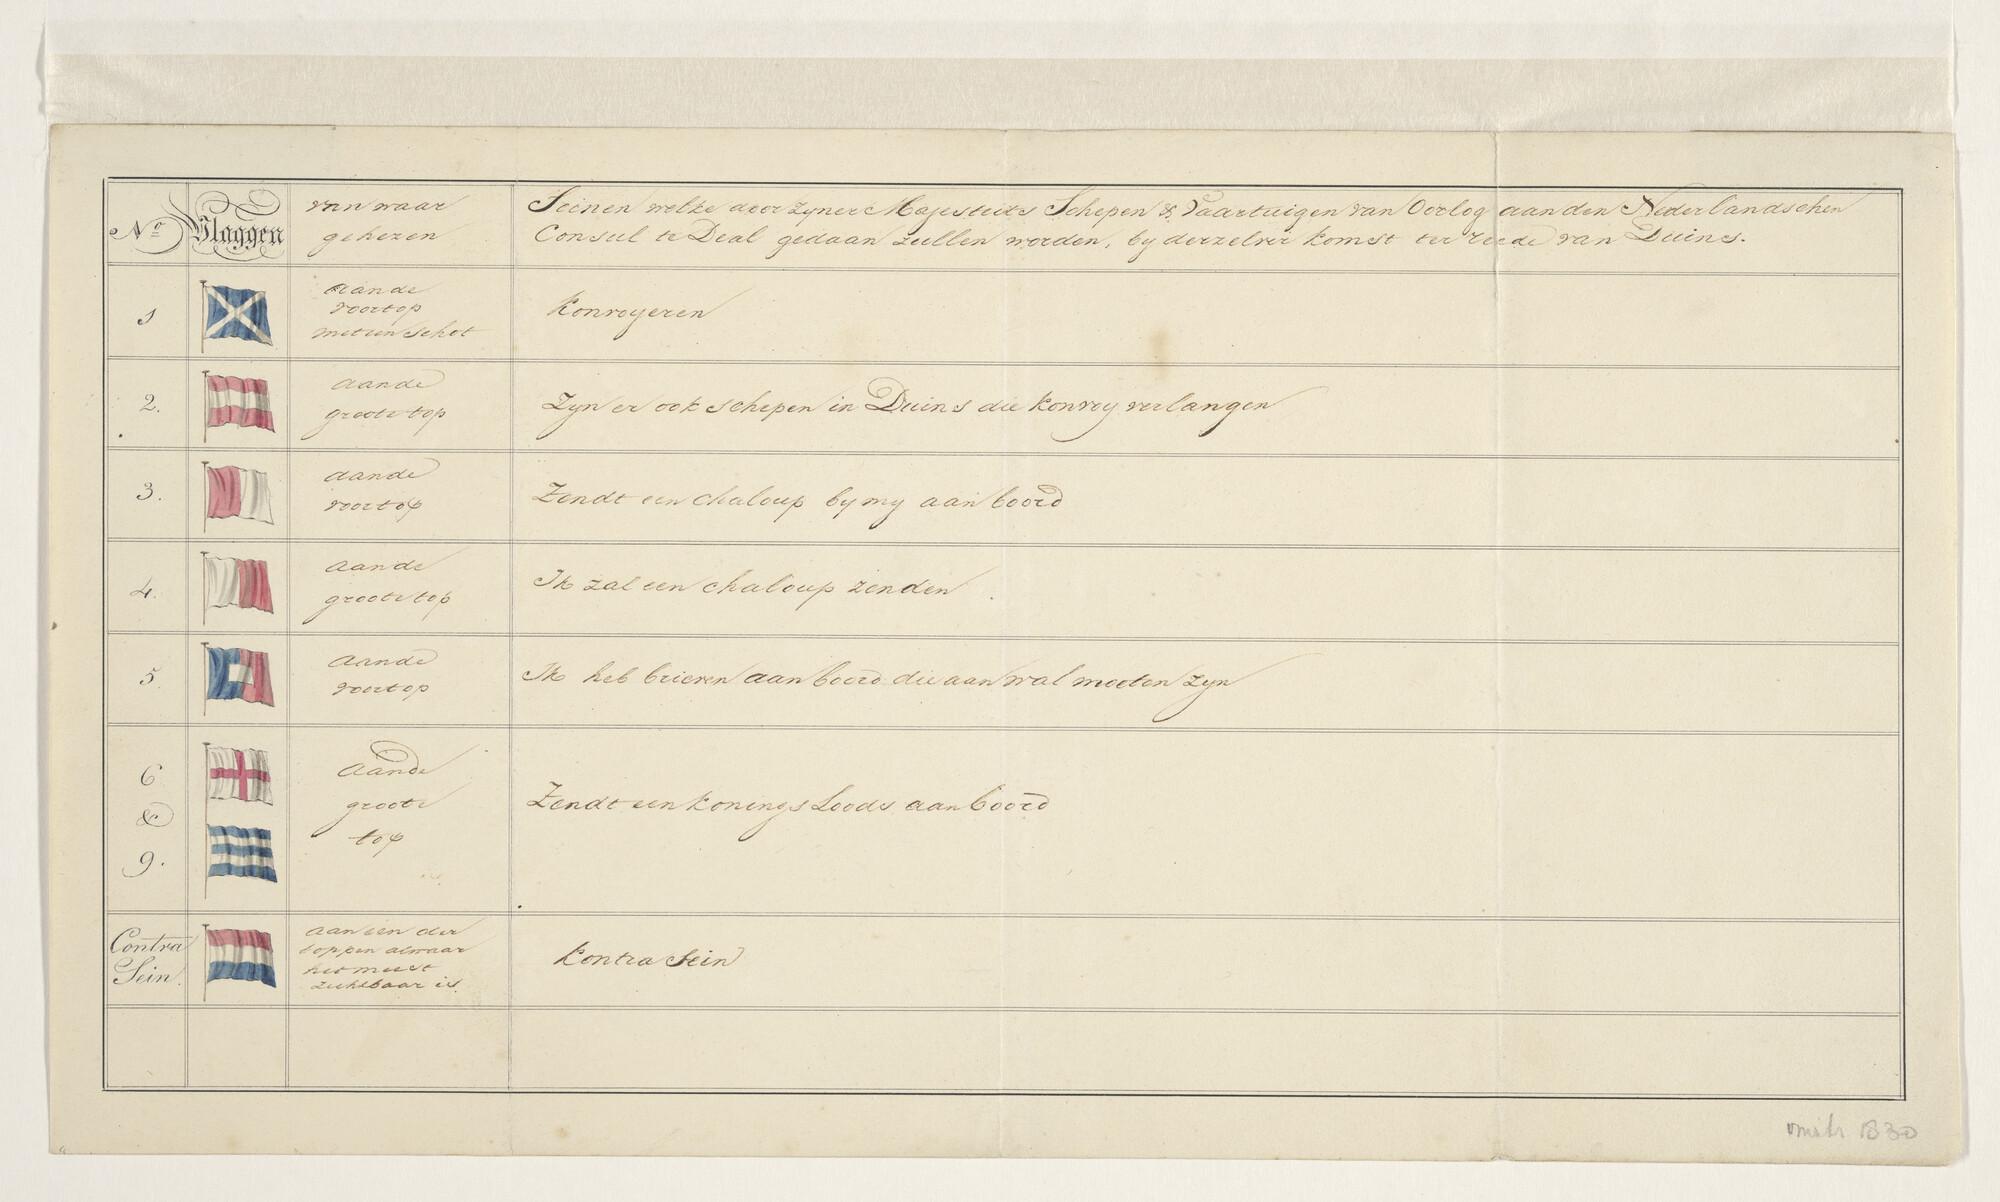 No
Vlaggen
van waar
gehezen
Seinen welke door zyner Majesteits Schepen & Vaartuigen van Oorlog aan den Nederlandschen
Consul te Deal gedaan zullen worden, by derzelver komst ter reede van Duins.
1
aan de
voortop
met een schot
Konvoyeren
2.
aan de
groote top
Zyn er ook schepen in Duins die konvoy verlangen
3.
aan de
voortop
Zendt een chaloup by my aan boord
4.
aan de
groote top
Ik zal een chaloup zenden
5
aan de
voortop
Ik heb brieven aan boord die aan wal moeten zyn
6
&
9.
aan de
groote
top
Zendt een Konings Loods aan boord
Contra
Sein.
aan een der
toppen alwaar
het meest
zichtbaar is.
Kontra Sein
1830